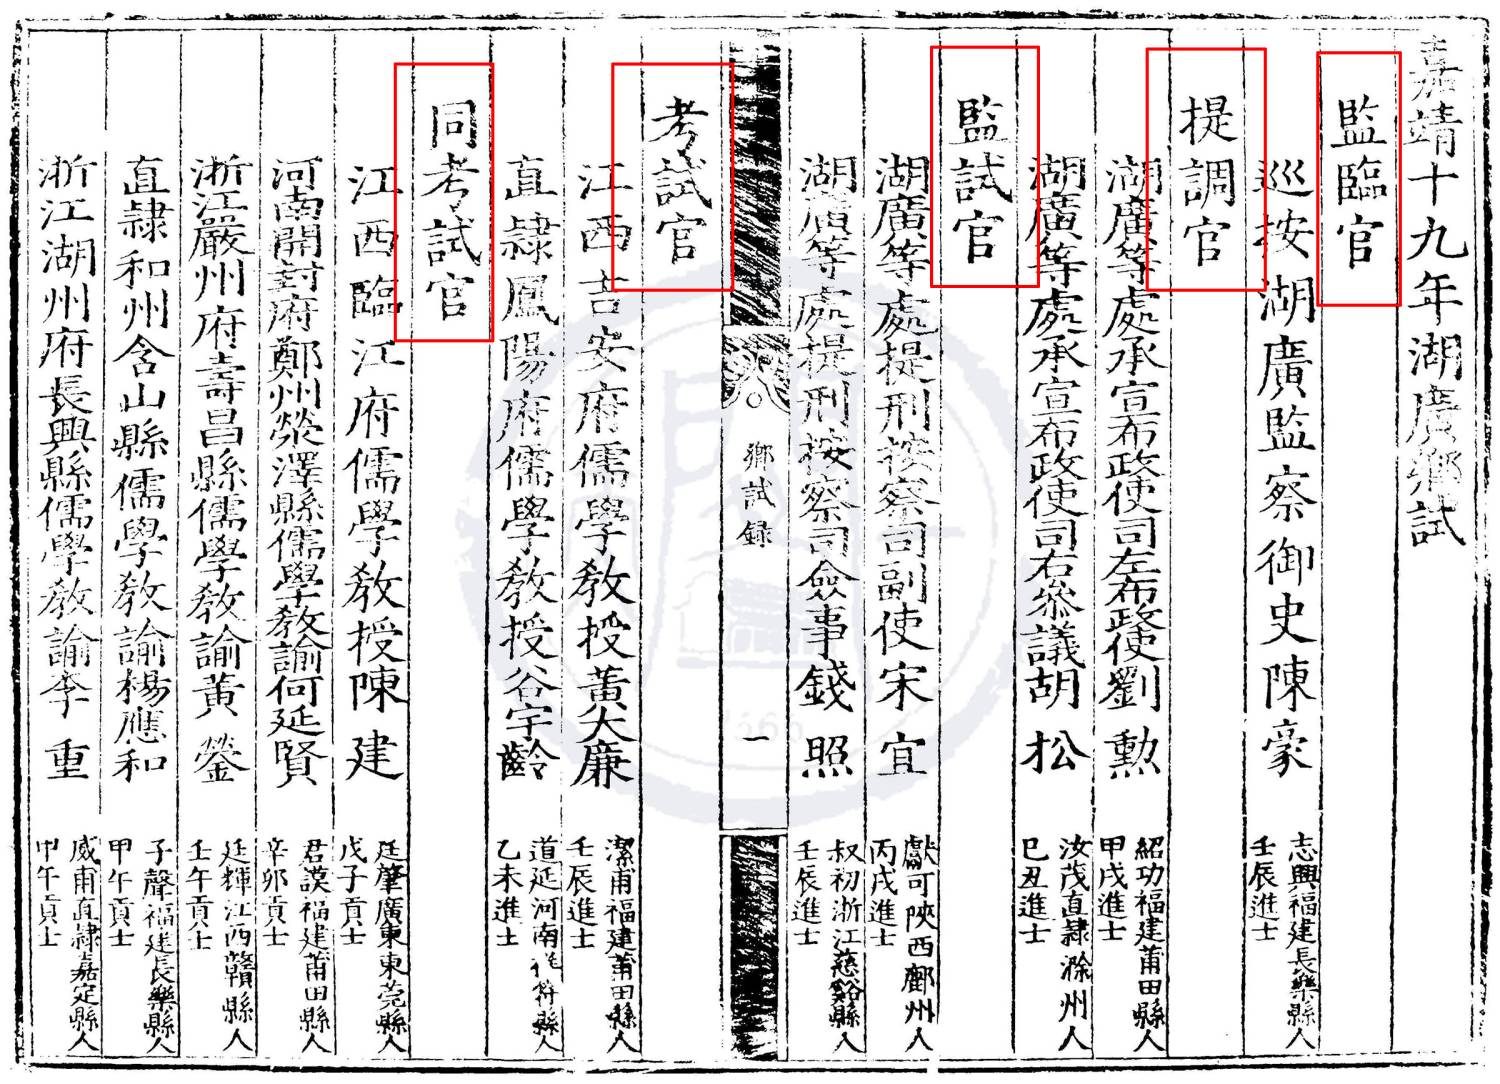 嘉靖十九年湖廣鄉試
監臨官
巡按湖廣監察御史陳豪
志興福建長樂縣人
壬辰進士
提調官
湖廣等處承宣布政使司左布政使劉勲
紹功福建莆田縣人
甲戌進士
湖廣等處承宣布政使司右叅議胡松
汝茂直隸滁州人
己丑進士
監試官
湖廣等處提刑按察司副使宋宜
獻可陝西鄜州人
丙戌進士
湖廣等處提刑按察司僉事錢照
叔初浙江慈谿縣人
壬辰進士
鄉試錄
一
考試官
江西吉安府儒學教授黃大廉
潔甫福建莆田縣人
壬辰進士
直隸鳳陽府儒學教授谷宇齡
道延河南祥符縣人
乙未進士
同考試官
江西臨江府儒學教授陳建
廷肇廣東東莞縣人
戊子貢士
河南開封府鄭州滎澤縣儒學教諭何延賢
君謨福建莆田縣人
辛卯貢士
浙江嚴州府壽昌縣儒學教諭黃鎣
廷輝江西贛縣人
壬午貢士
直隸和州含山縣儒學教諭楊應和
子聲福建長樂縣人
甲午貢士
浙江湖州府長興縣儒學教諭李重
威甫直隸嘉定縣人
甲午貢士